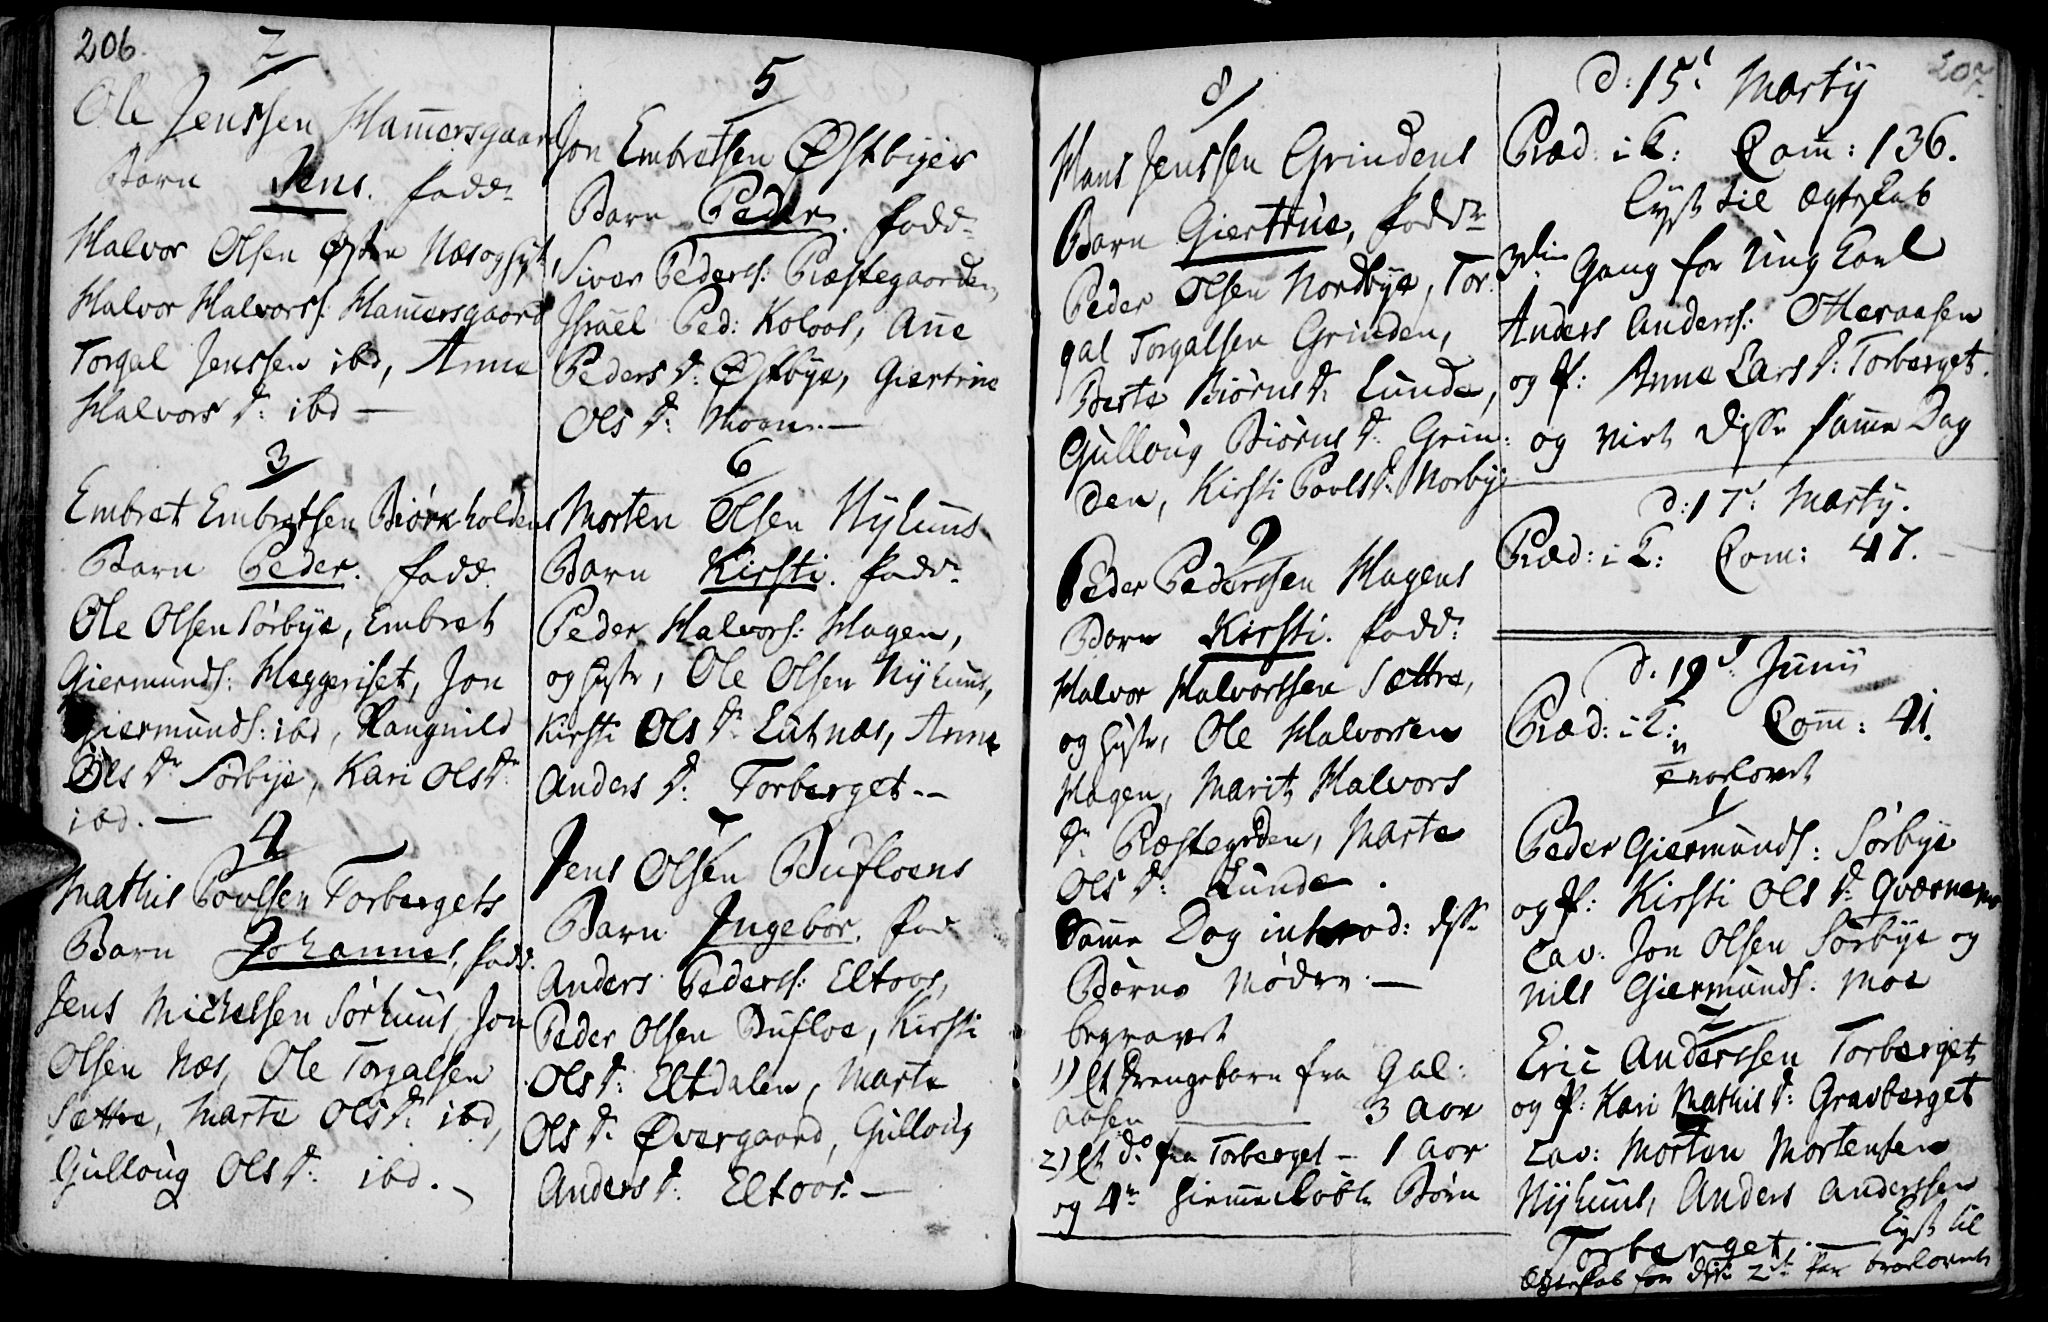 206.
2
Ole Jenssen Ham̄ersgaard
Barn Jens. fadd:
Halvor Olsen Østre Næs og Hust.
Halvor Halvorss: Ham̄ersgaard
Torgal Jenssen ibd, Anne
Halvors D: ibd —
3
Embret Embretsen Biørkholdens
Barn Peder. fadd:
Ole Olsen Sørbye, Embret
Giermunds: Heggeriset, Jon
Giermunds: ibd, Raugnild
Ols Dr Sørbye, Kari Ols Dr
ibd. —
4
Mathis Povlsen Torbergets
Barn Johannes, fadd:
Jens Michelsen Sørhuus, Jon
Olsen Næs, Ole Torgalsen
Sættre, Marte Ols D: ibd,
Gulloug Ols D: ibd.
5
Jon Embretsen Østbyes
Barn Peder. fadd:
Siver Pederss: Præstegaarden,
Israel Ped: Kolaas, An̄e
Peders D: Østbye, Giertrue
Ols D: Moen. —
6
Morten Olsen Nyhuus
Barn Kirsti. fadd:
Peder Halvors: Hagen,
og Hustr, Ole Olsen Nyhuus,
Kirsti Ols D: Lutnæs, Anne
Anders D: Torberget. —
7
Jens Olsen Bufloens
Barn Ingebor. fad
Anders Pederss: Eltoos,
Peder Olsen Bufloe, Kirsti
Ols D: Eltdalen, Marte
Ols D: Øvergaard, Gulloug
Anders D: Eltoos. —
8
Hans Jenssen Grindens
Barn Giertrue, fadd:
Peder Olsen Nordbye, Tor:
gal Torgalsen Grinden,
Berte Biørns D: Lunde,
Gulloug Biørns D: Grin:
den, Kirsti Povls D: Norbye
9
Peder Pederssen Hagens
Barn Kirsti. fadd:
Halvor Halvorssen Sættre,
og Hustr, Ole Halvorsen
Hagen, Marit Halvors
Dr Præstegrden, Marte
Ols D: Lunde.
Sam̄e Dag introd: disse
Børns Mødre. —
begravet
1) Et Drengebarn fra Gal:
aasen 3 Aar
2) Et do fra Torberget — 1 Aar
og 4re hiem̄edøbte Børn
207.
d: 15' Marty
Præd: i K: Com̄: 136.
Lyst til Ægteskab
3die Gang for Ung Karl
Anders Anderss: Otteraasen
og P: Anne Lars D: Torberget.
og Viet disse sam̄e Dag
d: 17' Marty.
Præd: i K: Com: 47. —
d. 19' Junii
Præd: i K: Com̄: 41.
Trolovet
1
Peder Giermunds: Sørbye
og P: Kirsti Ols D: Qværnemo
Cav: Jon Olsen Sørbye og
Nils Giermunds: Moe
2
Eric Anderssen Torberget
og P: Kari Mathis D: Gravberget
Cav: Morten Mortensen
Nyhuus, Anders Anderssen
Torberget. — Lyst til
Ægteskab for disse 2de Par trolovede